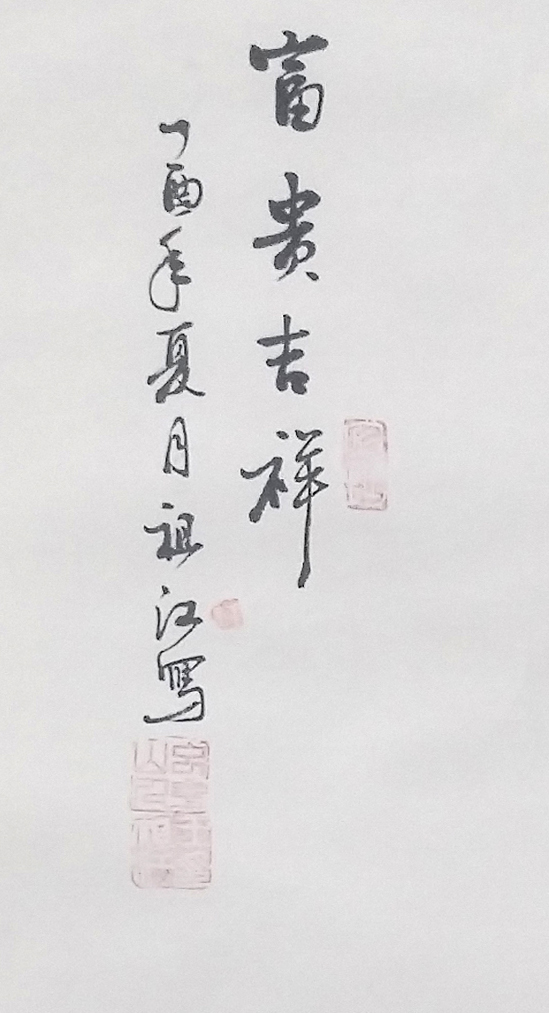 富贵吉祥
丁酉年夏月祖江写